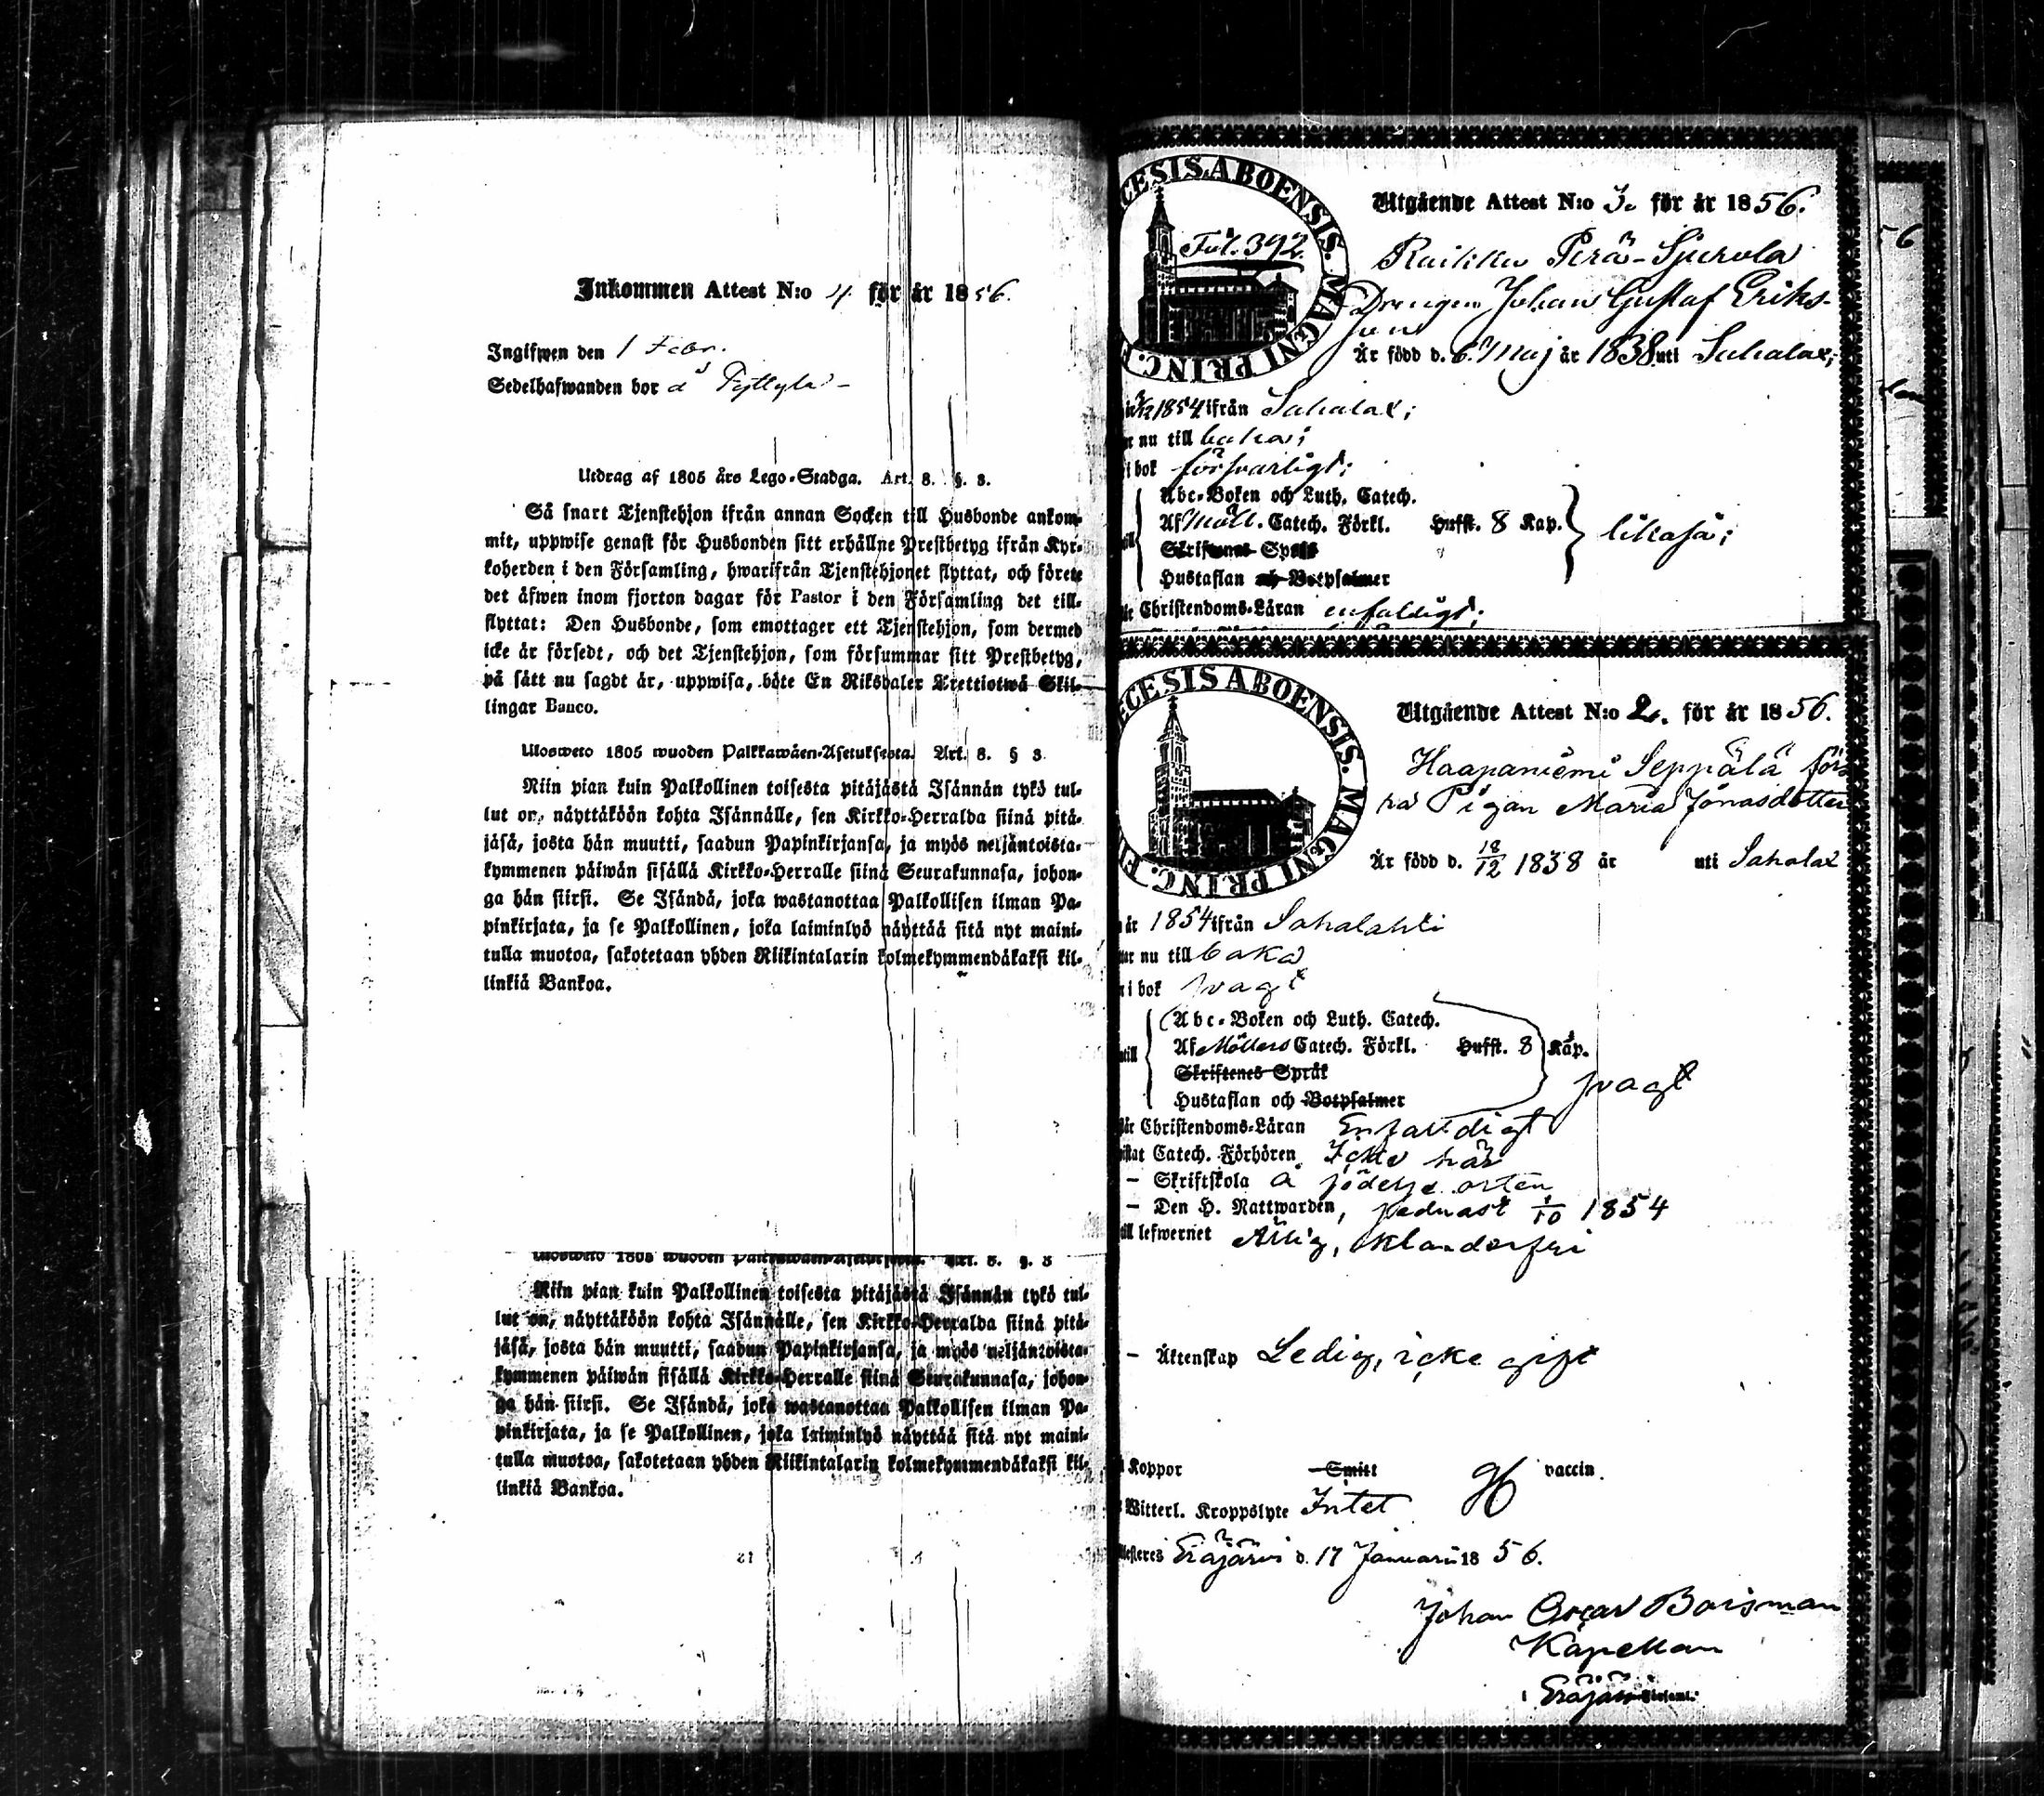 Inkommen Attest N:o 4. för år 1856.
Ingifwen den 1 Febr.
Sedelhafwanden bor å Pyttylä –
Utdrag af 1805 års Lego-Stadga. Art. 8. §. 3.
Så snart Tjenstehjon ifrån annan Socken till Husbonde ankom-
mit, uppwise genast för Husbonden sitt erhållne Prestbetyg ifrån Kyr-
koherden i den Församling, hwarifrån Tjenstehjonet flyttat, och förete
det äfwen inom fjorton dagar för Pastor i den Församling det till-
flyttat: Den Husbonde, som emottager ett Tjenstehjon, som dermed
icke är försedt, och det Tjenstehjon, som försummar sitt Prestbetyg,
på sätt nu sagdt är, uppwisa, böte En Riksdaler Trettiotwå Skil-
lingar Banco.
Ulosweto 1805 wuoden Palkkawäen-Asetuksesta. Art. 8. § 3.
Niin pian kuin Palkollinen toisesta pitäjästä Isännän tykö tul-
lut on, näyttäköön kohta Isännälle, sen Kirkko-Herralda siinä pitä-
jäsä, josta hän muutti, saadun Papinkirjansa, ja myös neljäntoista-
kymmenen päiwän sisällä Kirkko-Herralle siinä Seurakunnasa, johon-
ga hän siirsi. Se Isändä, joka wastanottaa Palkollisen ilman Pa-
pinkirjata, ja se Palkollinen, joka laiminlyö näyttää sitä nyt maini-
tulla muotoa, sakotetaan yhden Riikintalarin kolmekymmendäkaksi kil-
linkiä Bankoa.
Ulosweto 1805 wuoden Palkkawäen-Asetuksesta. Art. 8. §. 3
Niin pian kuin Palkollinen toisesta pitäjästä Isännän tykö tul-
lut on, näyttäköön kohta Isännälle, sen Kirkko-Herralda siinä pitä-
jäsä, josta hän muutti, saadun Papinkirjansa, ja myös neljäntoista-
kymmenen päiwän sisällä Kirkko-Herralle siinä Seurakunnasa, johon-
ga hän siirsi. Se Isändä, joka wastanottaa Palkollisen ilman Pa-
pinkirjata, ja se Palkollinen, joka laiminlyö näyttää sitä nyt maini-
tulla muotoa, sakotetaan yhden Riikintalarin kolmekymmendäkaksi kil-
linkiä Bankoa.
CESIS ABOENSIS. MAGNI PRINC. F
Fol. 392.
Utgående Attest N:o 3. för år 1856.
Raikku Perä-Sjurola
Drengen Johan Gustaf Eriks-
son
Är född d. 6 Maj år 1838 uti Sahalax;
1854 ifrån Sahalax;
nu till baka;
i bok försvarligt;
Abc-Boken och Luth. Catech.
Af Möll. Catech. Förkl. Hufst. 8 Kap. likaså;
Skriftenes Språk
Hustaflan och Botpsalmer
Christendoms-Läran enfaldigt;
ECESIS ABOENSIS. MAGNI PRINC. FI
Utgående Attest N:o 2. för år 1856.
Haapaniemi Seppälä för
ra Pigan Maria Jonasdotter
Är född d. 18/12 1838 år uti Sahalax
år 1854 ifrån Sahalahti
nu till baka
i bok svagt
Abc-Boken och Luth. Catech.
Af Möllers Catech. Förkl. Hufst. 8 Kap.
Skriftenes Språk
svagt
Hustaflan och Botpsalmer
Christendoms-Läran Enfaldigt
Catech. Förhören Icke här
– Skriftskola å födelse orten
– Den H. Nattwarden, sednast 1/10 1854
till lefwernet Ärlig, oklanderfri
– Äktenskap Ledig, icke gift
Koppor Smitt vaccin.
Witterl. Kroppslyte Intet
Eräjärvi d. 17 Januarii 1856.
Johan Oscar Boisman
Kapellan
i Eräjärvi